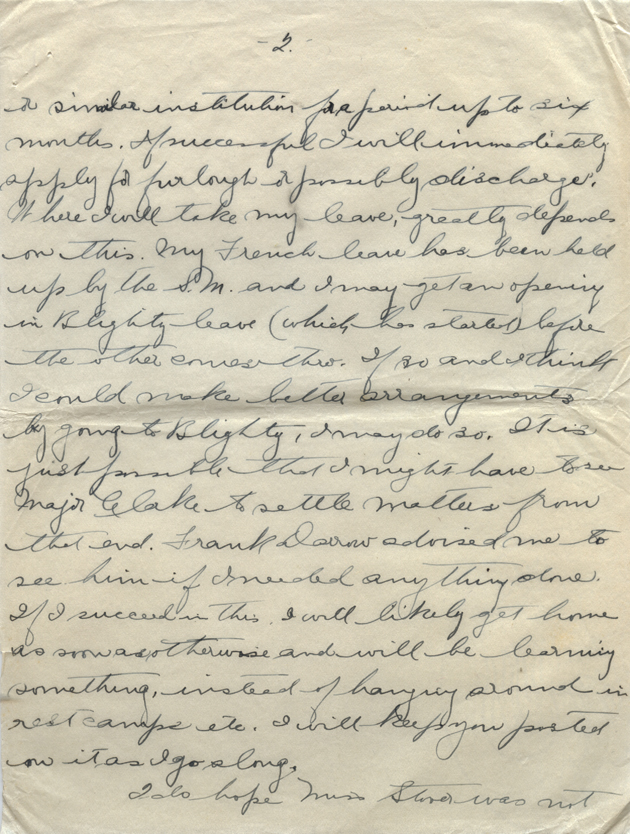 - 2. -
or similar institution for a period up to six
months. If successful I will immediately
apply for furlough or possibly discharge.
Where I will take my leave, greatly depends
on this. My French leave has been held
up by the S.M. and I may get an opening
in Blighty leave (which has started) before
the other comes thro. If so and I think
I could make better arrangements
by going to Blighty, I may do so. It is
just possible that I might have to see
Major to settle matters from
that end. Frank Darrow advised me to
see him if I needed anything done.
If I succeed in this I will likely get home
as soon as otherwise and will be learning
something, instead of hanging around in
rest camps etc. I will keep you posted
on it as I go along.
I do hope Miss was not